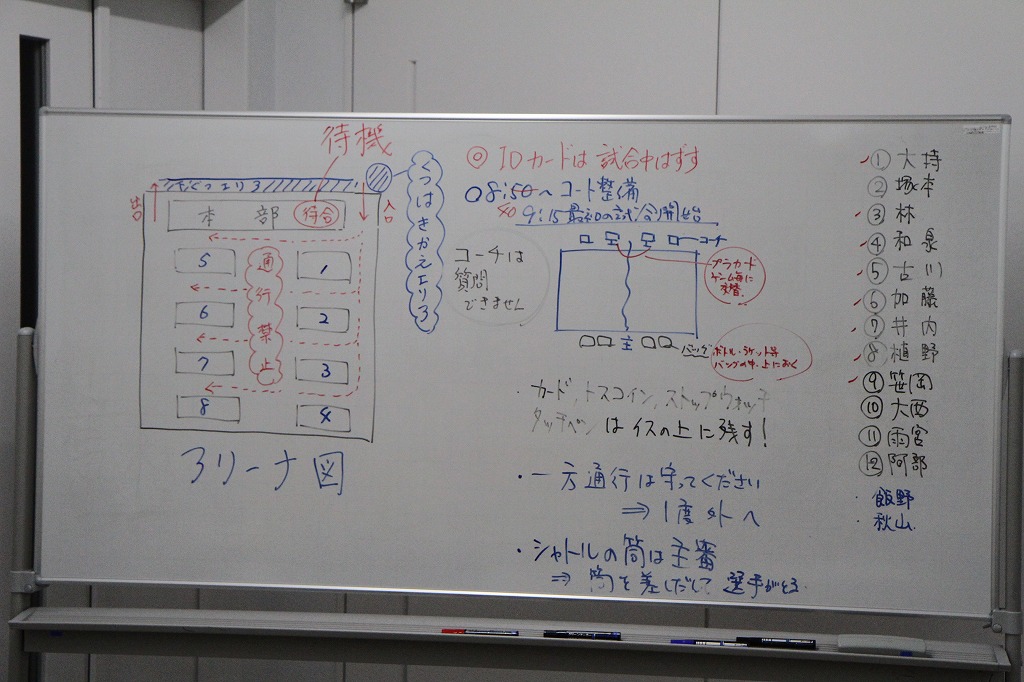 待機
ぞくつエリア
出口
入口
本部
待合
5
1
6
2
7
3
8
4
通行禁止
アリーナ図
くつはきかえエリア
◎IDカードは試合中はずす
08:50〜コート整備
40
9:15最初の試合開始
コーチは
質問
できません
コーチ
プラカード
ゲーム毎に
交替
主
バッグ
ボトル・ラケット等
バッグの中・上におく
・カード,トスコイン,ストップウォッチ
タッチペンはイスの上に残す!
・一方通行は守ってください
⇒1度外へ
・シャトルの筒は主審
⇒筒を差しだして選手がとる
①大持
②塚本
③林
④和泉
⑤古川
⑥加藤
⑦井内
⑧植野
⑨笹岡
⑩大西
⑪雨宮
⑫阿部
・飯野
・秋山